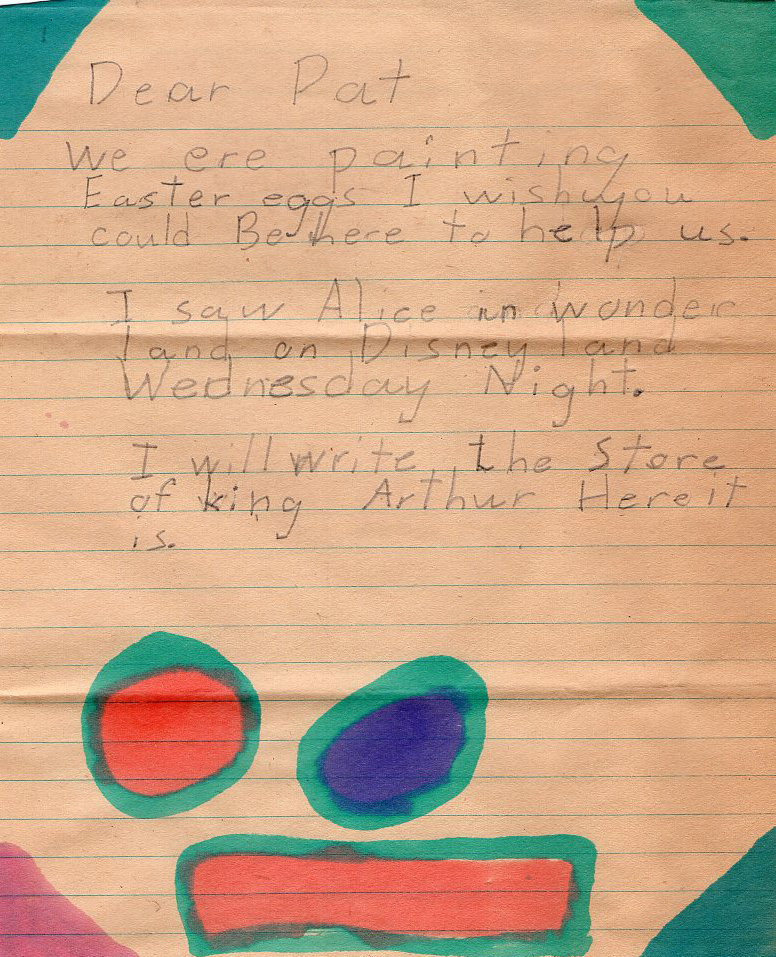 Dear Pat
We ere painting
Easter eggs I wish you
could Be here to help us.
I saw Alice in wonder
land on Disney land
Wednesday Night.
I will write the Store
of king Arthur Here it
is.